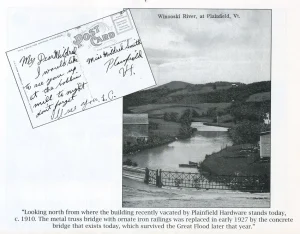 Winooski River, at Plainfield, Vt.
POST CARD
My Dear Mildred
I would like
to see you up
at the
melt to night
don't forget
Miss Mildred Smith
Plainfield
Vt.
"Looking north from where the building recently vacated by Plainfield Hardware stands today,
c. 1910. The metal truss bridge with ornate iron railings was replaced in early 1927 by the concrete
bridge that exists today, which survived the Great Flood later that year."